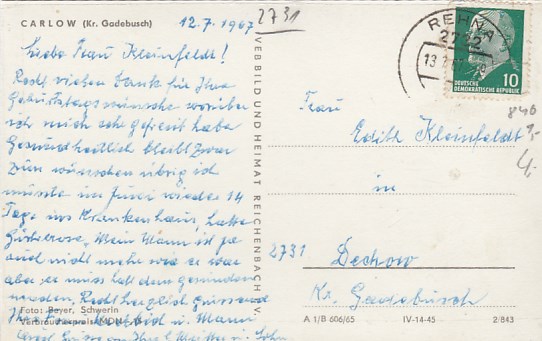 CARLOW (Kr. Gadebusch)
12.7.1967
2731
Liebe Frau Kleinfeldt!
Recht vielen Dank für Ihre
Geburtstagswünsche worüber
ich mich sehr gefreut habe
Gesundheitlich bleibt zwar
zum wünschen übrig ich
musste im Juni wieder 14
Tage ins Krankenhaus, hatte
Mein Mann ist ja
auch nicht mehr wie er war
aber, es muss halt dem
werden, Recht herzlich grüssend
Ihre Frau u. Mann
Foto: Beyer, Schwerin
Verbraucherpreis MDN
VEB BILD UND HEIMAT REICHENBACH V.
REHNA
2732
10
DEUTSCHE
DEMOKRATISCHE REPUBLIK
Frau
Edith Kleinfeldt
in
2731 Dechow
Kr. Gadebusch
A 1/B 606/65 IV-14-45 2/843